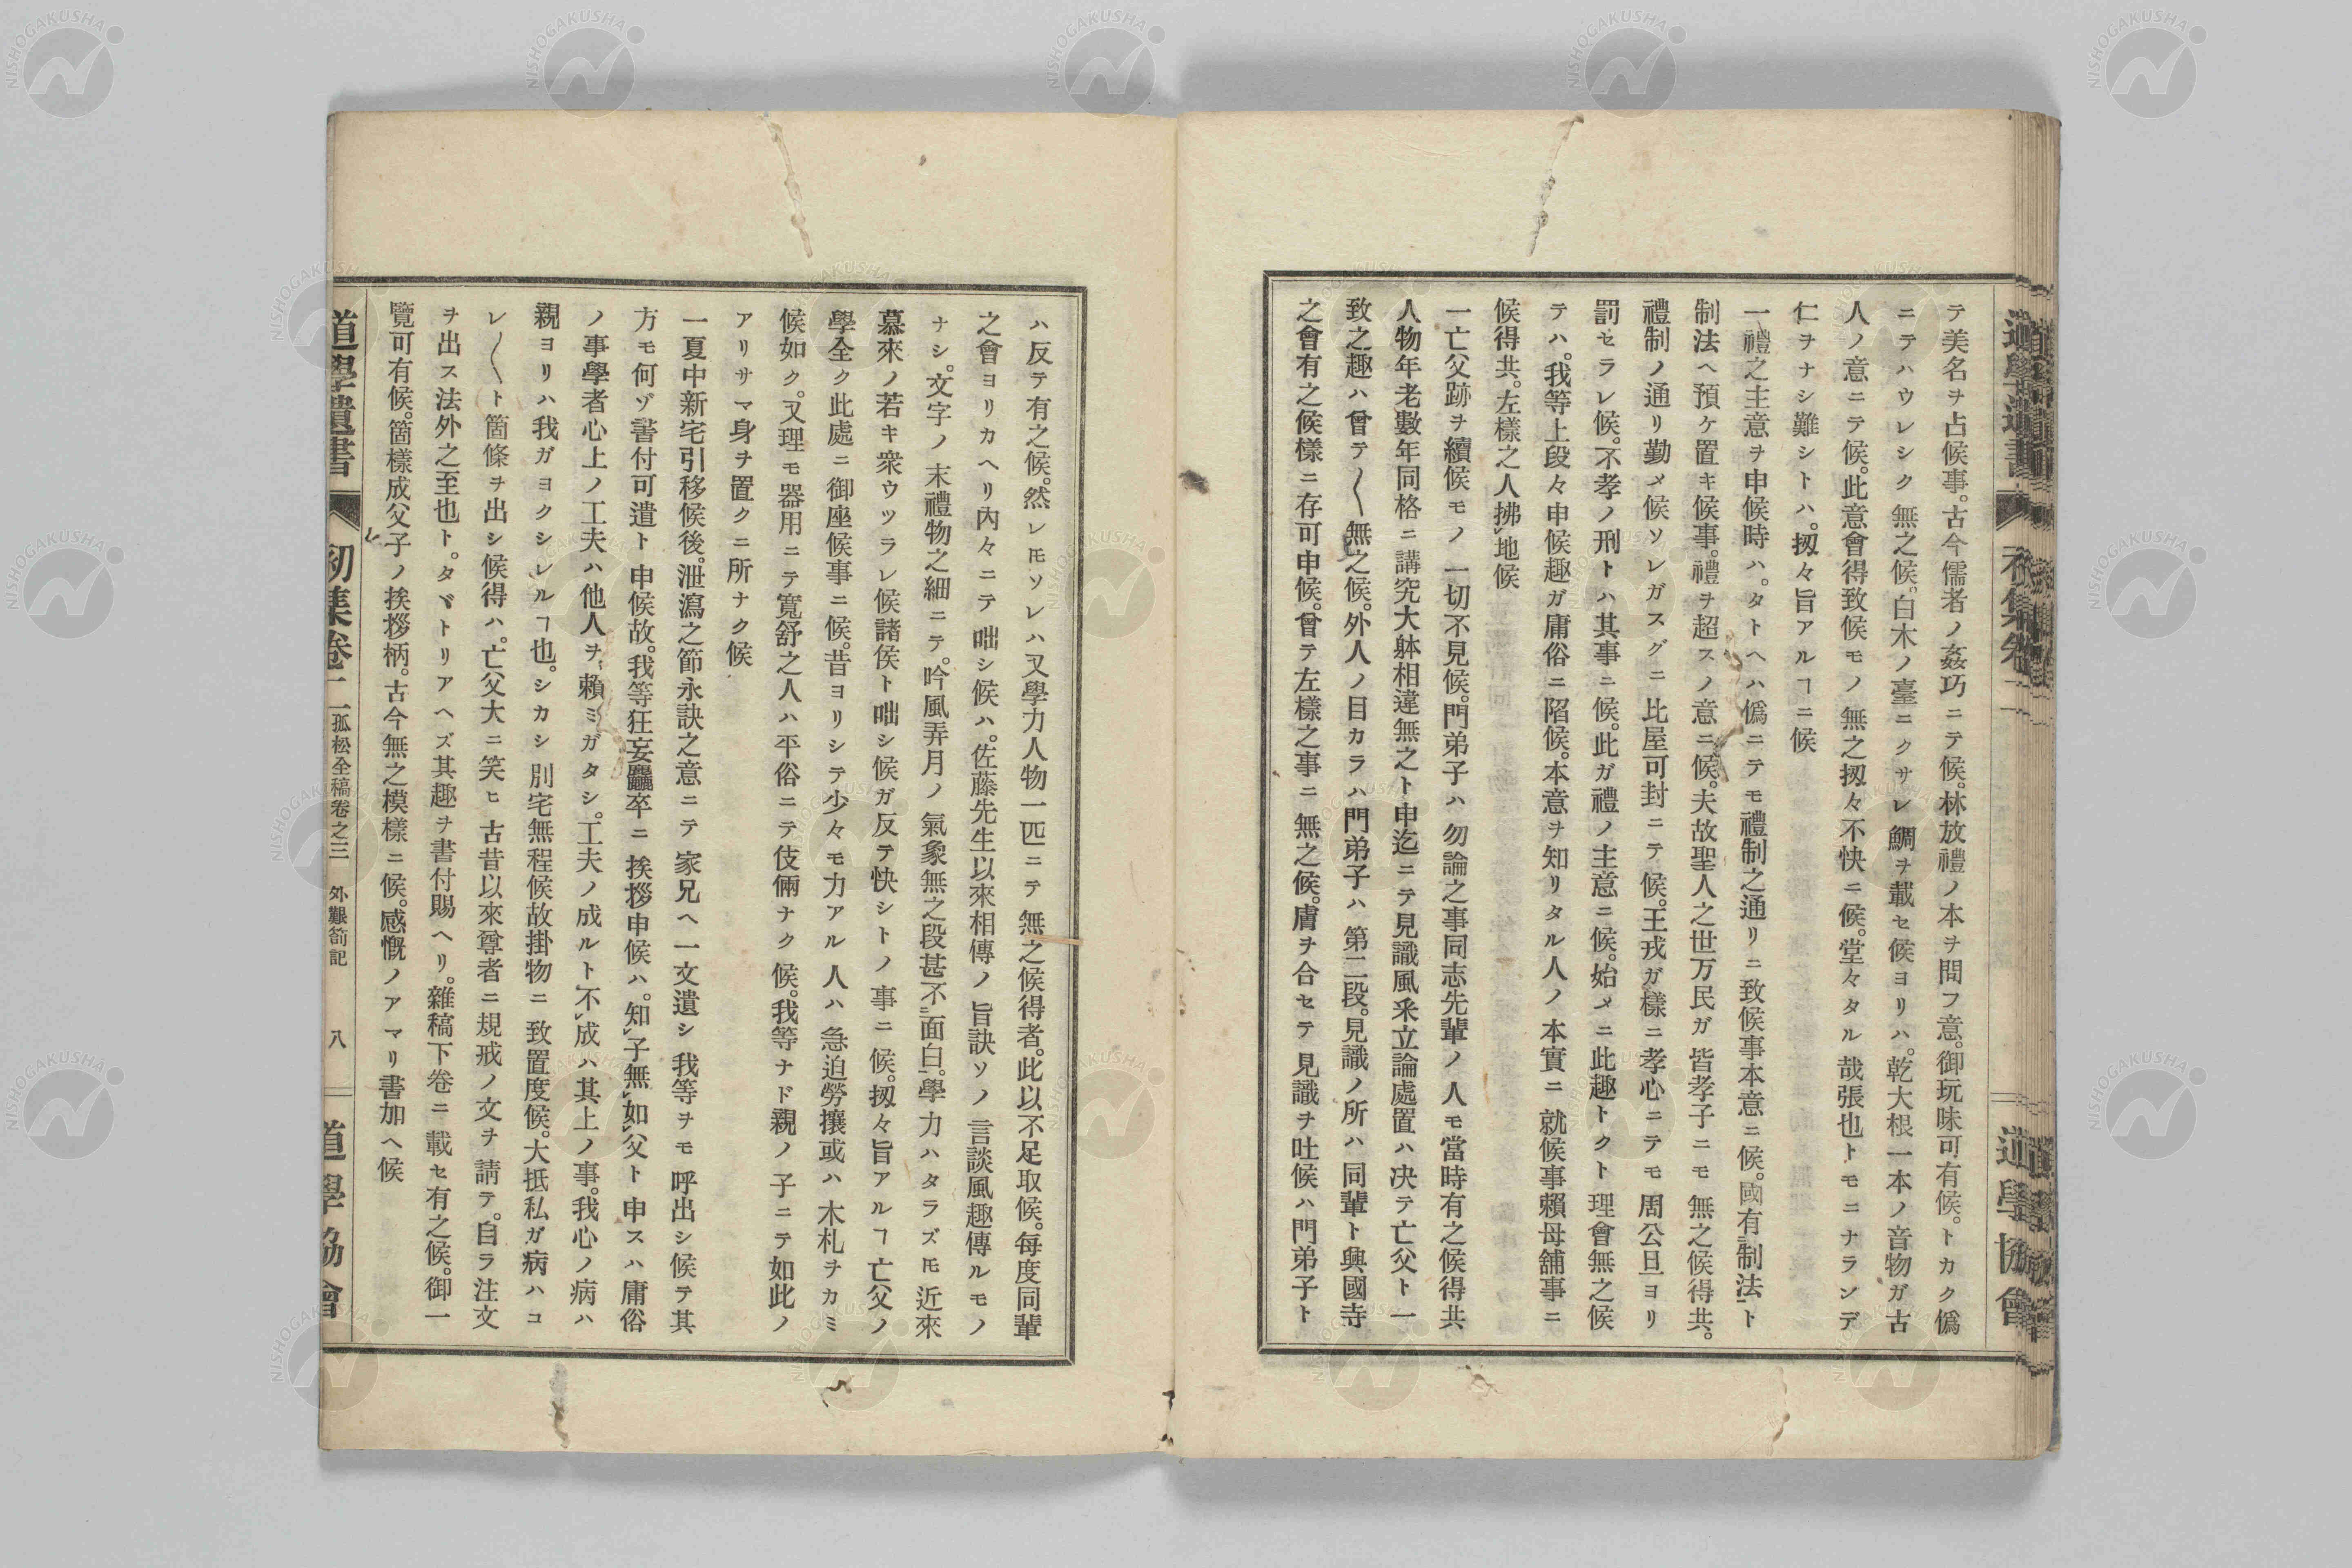 テ美名ヲ占候事。古今儒者ノ姦巧ニテ候。林放禮ノ本ヲ問フ意。御玩味可有候。トカク僞
ニテハウレシク無之候。白木ノ臺ニクサレ鯛ヲ載セ候ヨリハ。乾大根一本ノ音物ガ古
人ノ意ニテ候。此意會得致候モノ無之扨々不快ニ候。堂々タル哉張也トモニナランデ
仁ヲナシ難シトハ。扨々旨アルヿニ候
一禮之主意ヲ申候時ハ。タトヘハ僞ニテモ禮制之通リニ致候事本意ニ候。國有制法ト
制法ヘ預ケ置キ候事。禮ヲ超スノ意ニ候。夫故聖人之世万民ガ皆孝子ニモ無之候得共。
禮制ノ通リ勤メ候ソレガスグニ比屋可封ニテ候。王戎ガ樣ニ孝心ニテモ周公旦ヨリ
罰セラレ候。不孝ノ刑トハ其事ニ候。此ガ禮ノ主意ニ候。始メニ此趣トクト理會無之候
テハ。我等上段々申候趣ガ庸俗ニ陷候。本意ヲ知リタル人ノ本實ニ就候事賴母舖事ニ
候得共。左樣之人拂地候
一亡父跡ヲ續候モノ一切不見候。門弟子ハ勿論之事同志先輩ノ人モ當時有之候得共
人物年老數年同格ニ講究大躰相違無之ト申迄ニテ見識風釆立論處置ハ决テ亡父ト一
致之趣ハ曾テ〱無之候。外人ノ目カラハ門弟子ハ第二段。見識ノ所ハ同輩ト興國寺
之會有之候樣ニ存可申候。曾テ左樣之事ニ無之候。膚ヲ合セテ見識ヲ吐候ハ門弟子ト
ハ反テ有之候。然レㇳモソレハ又學力人物一匹ニテ無之候得者。此以不足取候。毎度同輩
之會ヨリカヘリ内々ニテ咄シ候ハ。佐藤先生以來相傳ノ旨訣ソノ言談風趣傳ルモノ
ナシ。文字ノ末禮物之細ニテ。吟風弄月ノ氣象無之段甚不面白。學力ハタラズㇳモ近來
慕來ノ若キ衆ウツラレ候諸侯ト咄シ候ガ反テ快シトノ事ニ候。扨々旨アルヿ亡父ノ
學全ク此處ニ御座候事ニ候。昔ヨリシテ少々モ力アル人ハ急迫勞攘或ハ木札ヲカミ
候如ク。又理モ器用ニテ寬舒之人ハ平俗ニテ伎倆ナク候。我等ナド親ノ子ニテ如此ノ
アリサマ身ヲ置クニ所ナク候
一夏中新宅引移候後。泄瀉之節永訣之意ニテ家兄ヘ一文遣シ我等ヲモ呼出シ候テ其
方モ何ゾ書付可遣ト申候故。我等狂妄麤卒ニ挨拶申候ハ。知子無如父ト申スハ庸俗
ノ事學者心上ノ工夫ハ他人ヲ賴ミガタシ。工夫ノ成ルト不成ハ其上ノ事。我心ノ病ハ
親ヨリハ我ガヨクシレルヿ也。シカシ別宅無程候故掛物ニ致置度候。大抵私ガ病ハコ
レ〱ト箇條ヲ出シ候得ハ。亡父大ニ笑ヒ古昔以來尊者ニ規戒ノ文ヲ請テ。自ラ注文
ヲ出ス法外之至也ト。タヾトリアヘズ其趣ヲ書付賜ヘリ。雜稿下卷ニ載セ有之候。御一
覽可有候。箇樣成父子ノ挨拶柄。古今無之模樣ニ候。感慨ノアマリ書加ヘ候
道學遺書 初集卷二 孤松全稿卷之三 外艱箚記 八 道學協會